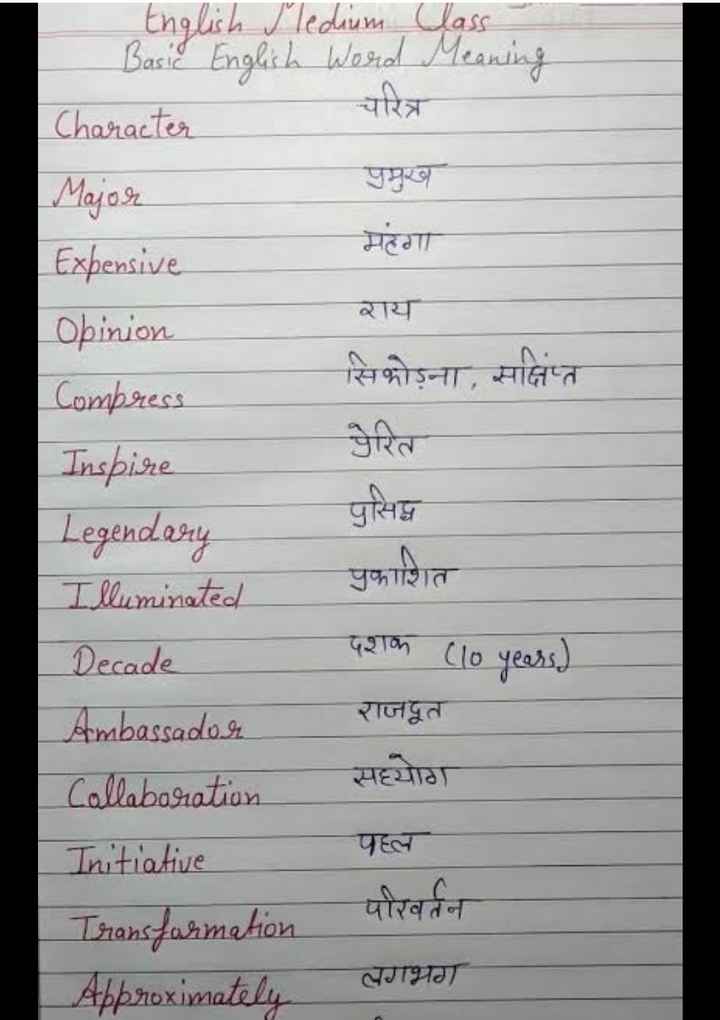 English Medium Class
Basic English Word Meaning
Character चरित्र
Major प्रमुख
Expensive महंगा
Opinion राय
Compress सिकोड़ना, सक्षिंप्त
Inspire प्रेरित
Legendary प्रसिद्ध
Illuminated प्रकाशित
Decade दशक (10 years)
Ambassador राजदूत
Collaboration सहयोग
Initiative पहल
Transformation परिवर्तन
Approximately लगभग